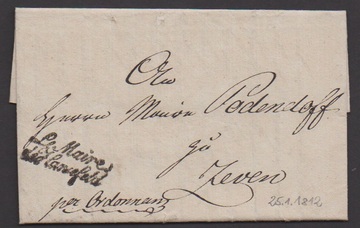 An
Herrn Maire Podendorff
zu
Zeven
Le Maire
per Ordonnanz
25.1.1812